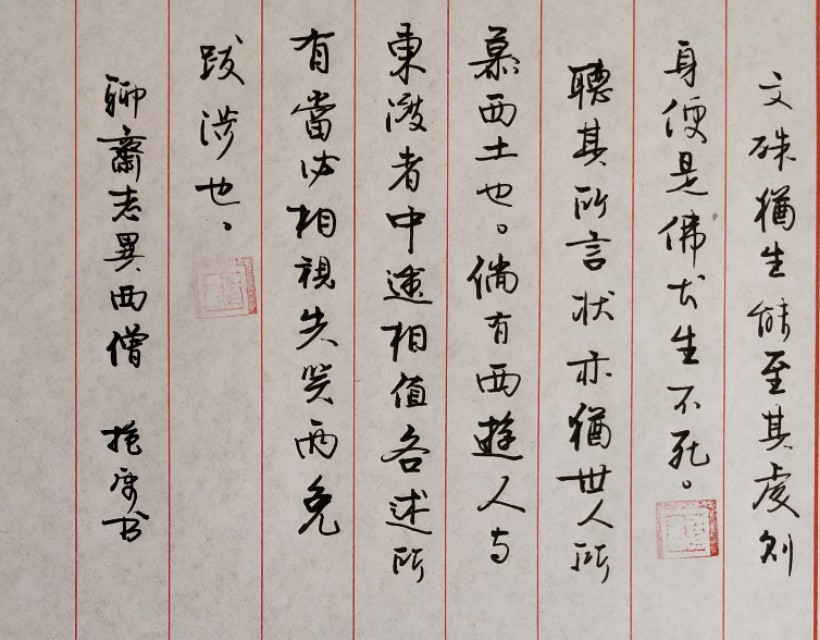 文殊猶生能至其處則
身便是佛長生不死。
聽其所言狀亦猶世人所
慕西土也。倘有西遊人与
東渡者中途相值各述所
有當必相視失笑两免
跋涉也。
聊齋志異西僧 书